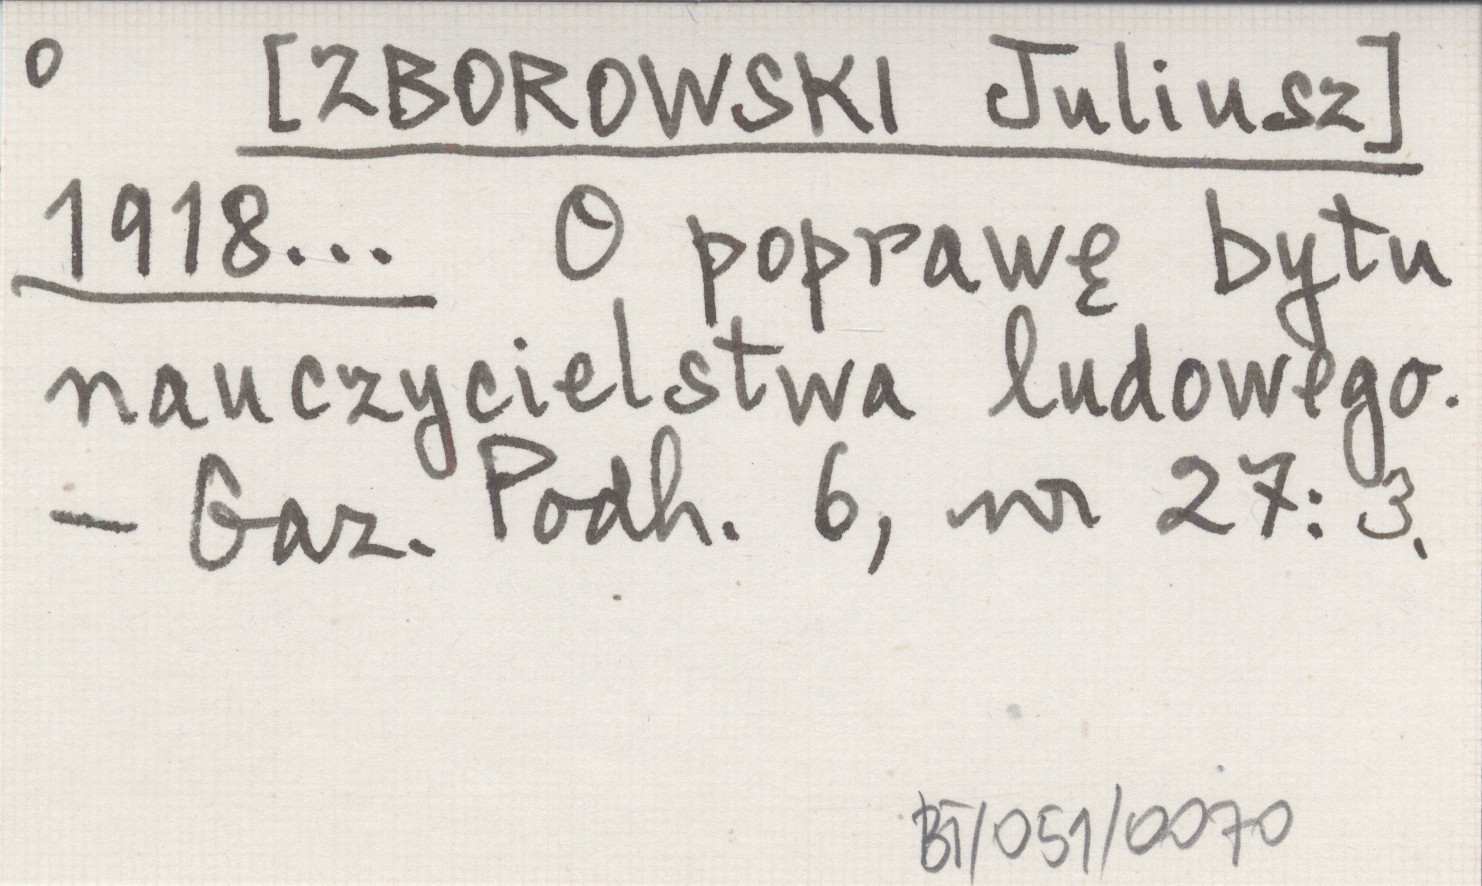 o [ZBOROWSKI Juliusz]
1918... O poprawę bytu
nauczycielstwa ludowego.
- Gaz. Podh. 6, nr 27: 3.
BT/051/0070